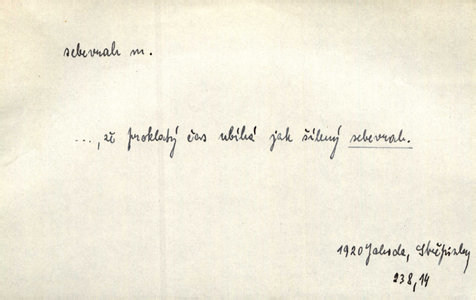 sebevrah m.
..., až proklatý čas ubíhá jak šílený sebevrah.
1920 Jahoda, Střepinky
238,14